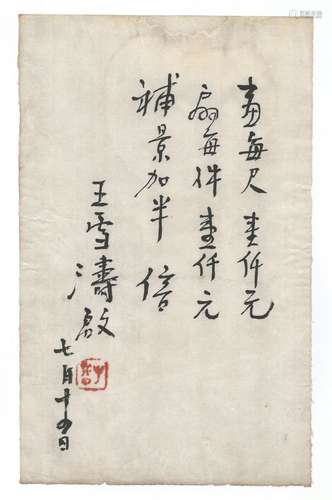 畫每尺壹仟元
扇每件壹仟元
補景加半倍
王雪濤啟
七月十四日